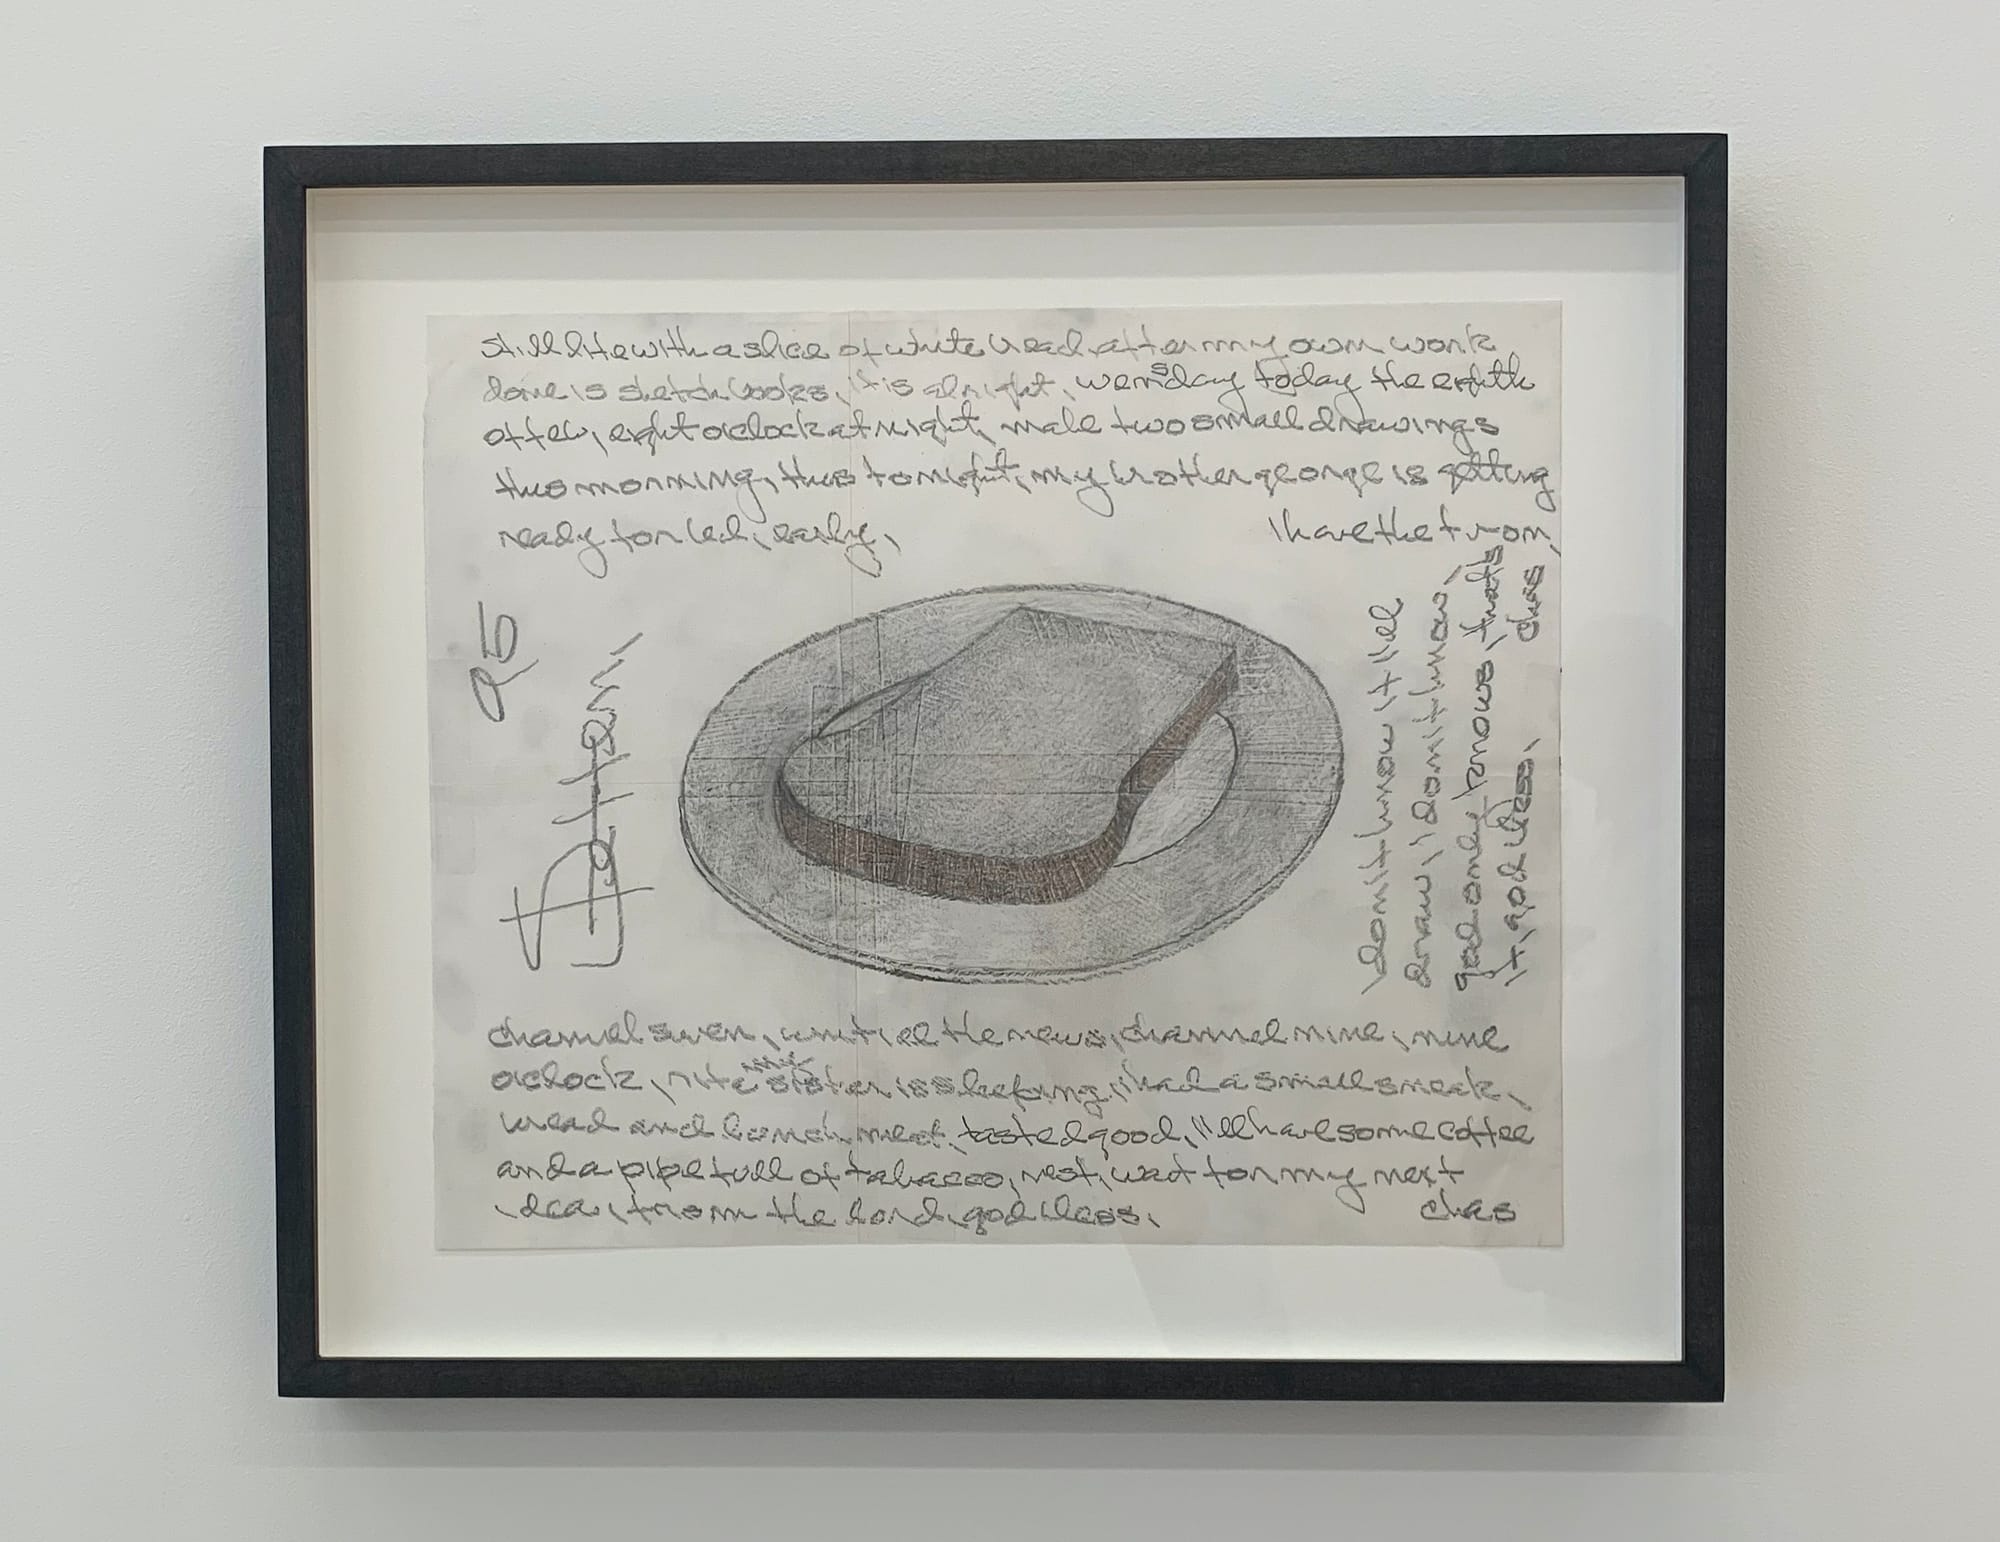 still life with a slice of white bread, after my own work
done is sketch books, it is alright, wensday today the eighth
of feb, eight oclock at night, made two small drawings
this morning, this tonight, my brother george is getting
ready for bed, early,
I have the t room,
95
I dont know it I tel
draw, I dont know,
god only knows, thats
it, god bless, chas
channel seven, until the news, channel nine, nine
oclock, nite my sister is sleeping, I had a small sneak,
bread and lunch meet, tasted good, I'll have some coffee
and a pipe full of tabacco, rest, wait for my next
idea, from the lord, god bless, chas